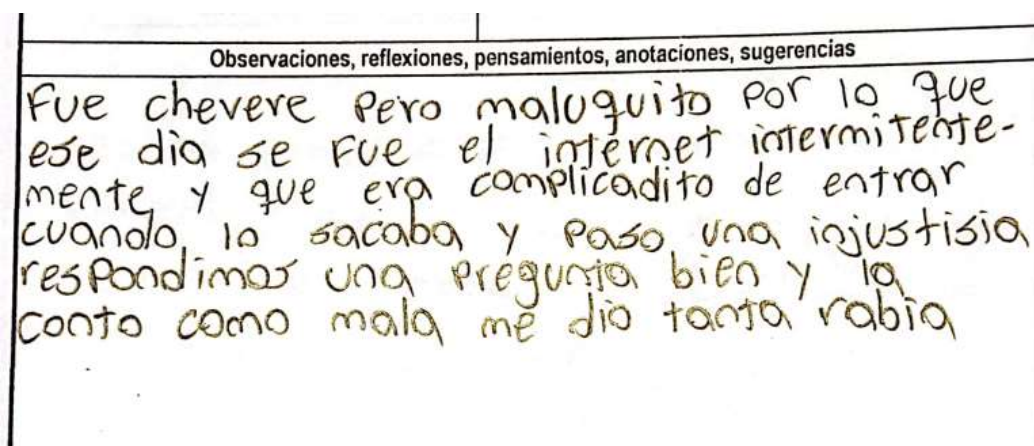 Observaciones, reflexiones, pensamientos, anotaciones, sugerencias
Fue chevere pero maluquito por lo que
ese dia se fue el internet intermitente-
mente y que era complicadito de entrar
cuando lo sacaba y paso una injustisia
respondimos una pregunta bien y la
conto como mala me dio tanta rabia